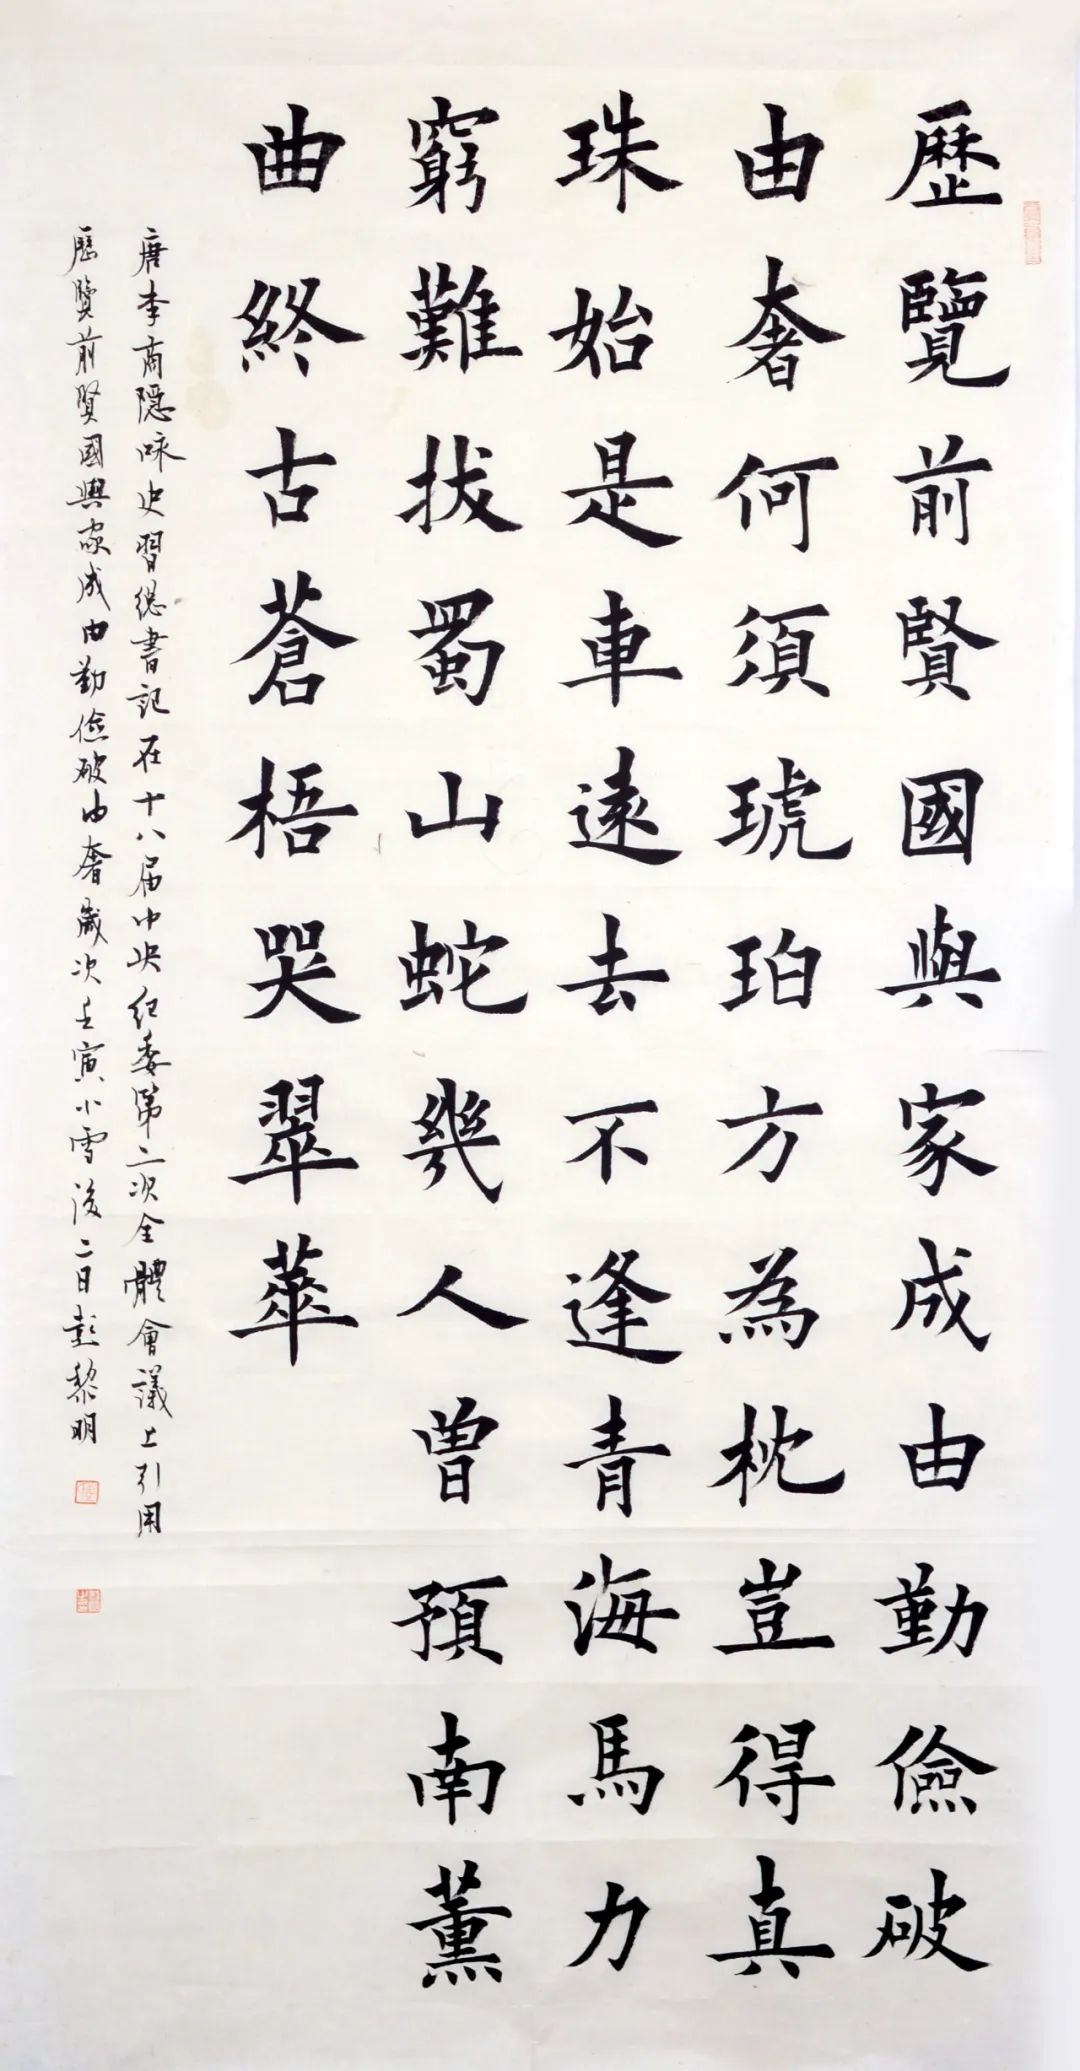 歷覽前賢國與家成由勤儉破
由奢何須琥珀方為枕豈得真
珠始是車遠去不逢青海馬力
窮難拔蜀山蛇幾人曾預南薰
曲終古蒼梧哭翠華
唐李商隱咏史習總書記在十八届中央紀委第二次全體會議上引用
歷覽前賢國與家成由勤儉破由奢歲次壬寅小雪後二日彭黎明